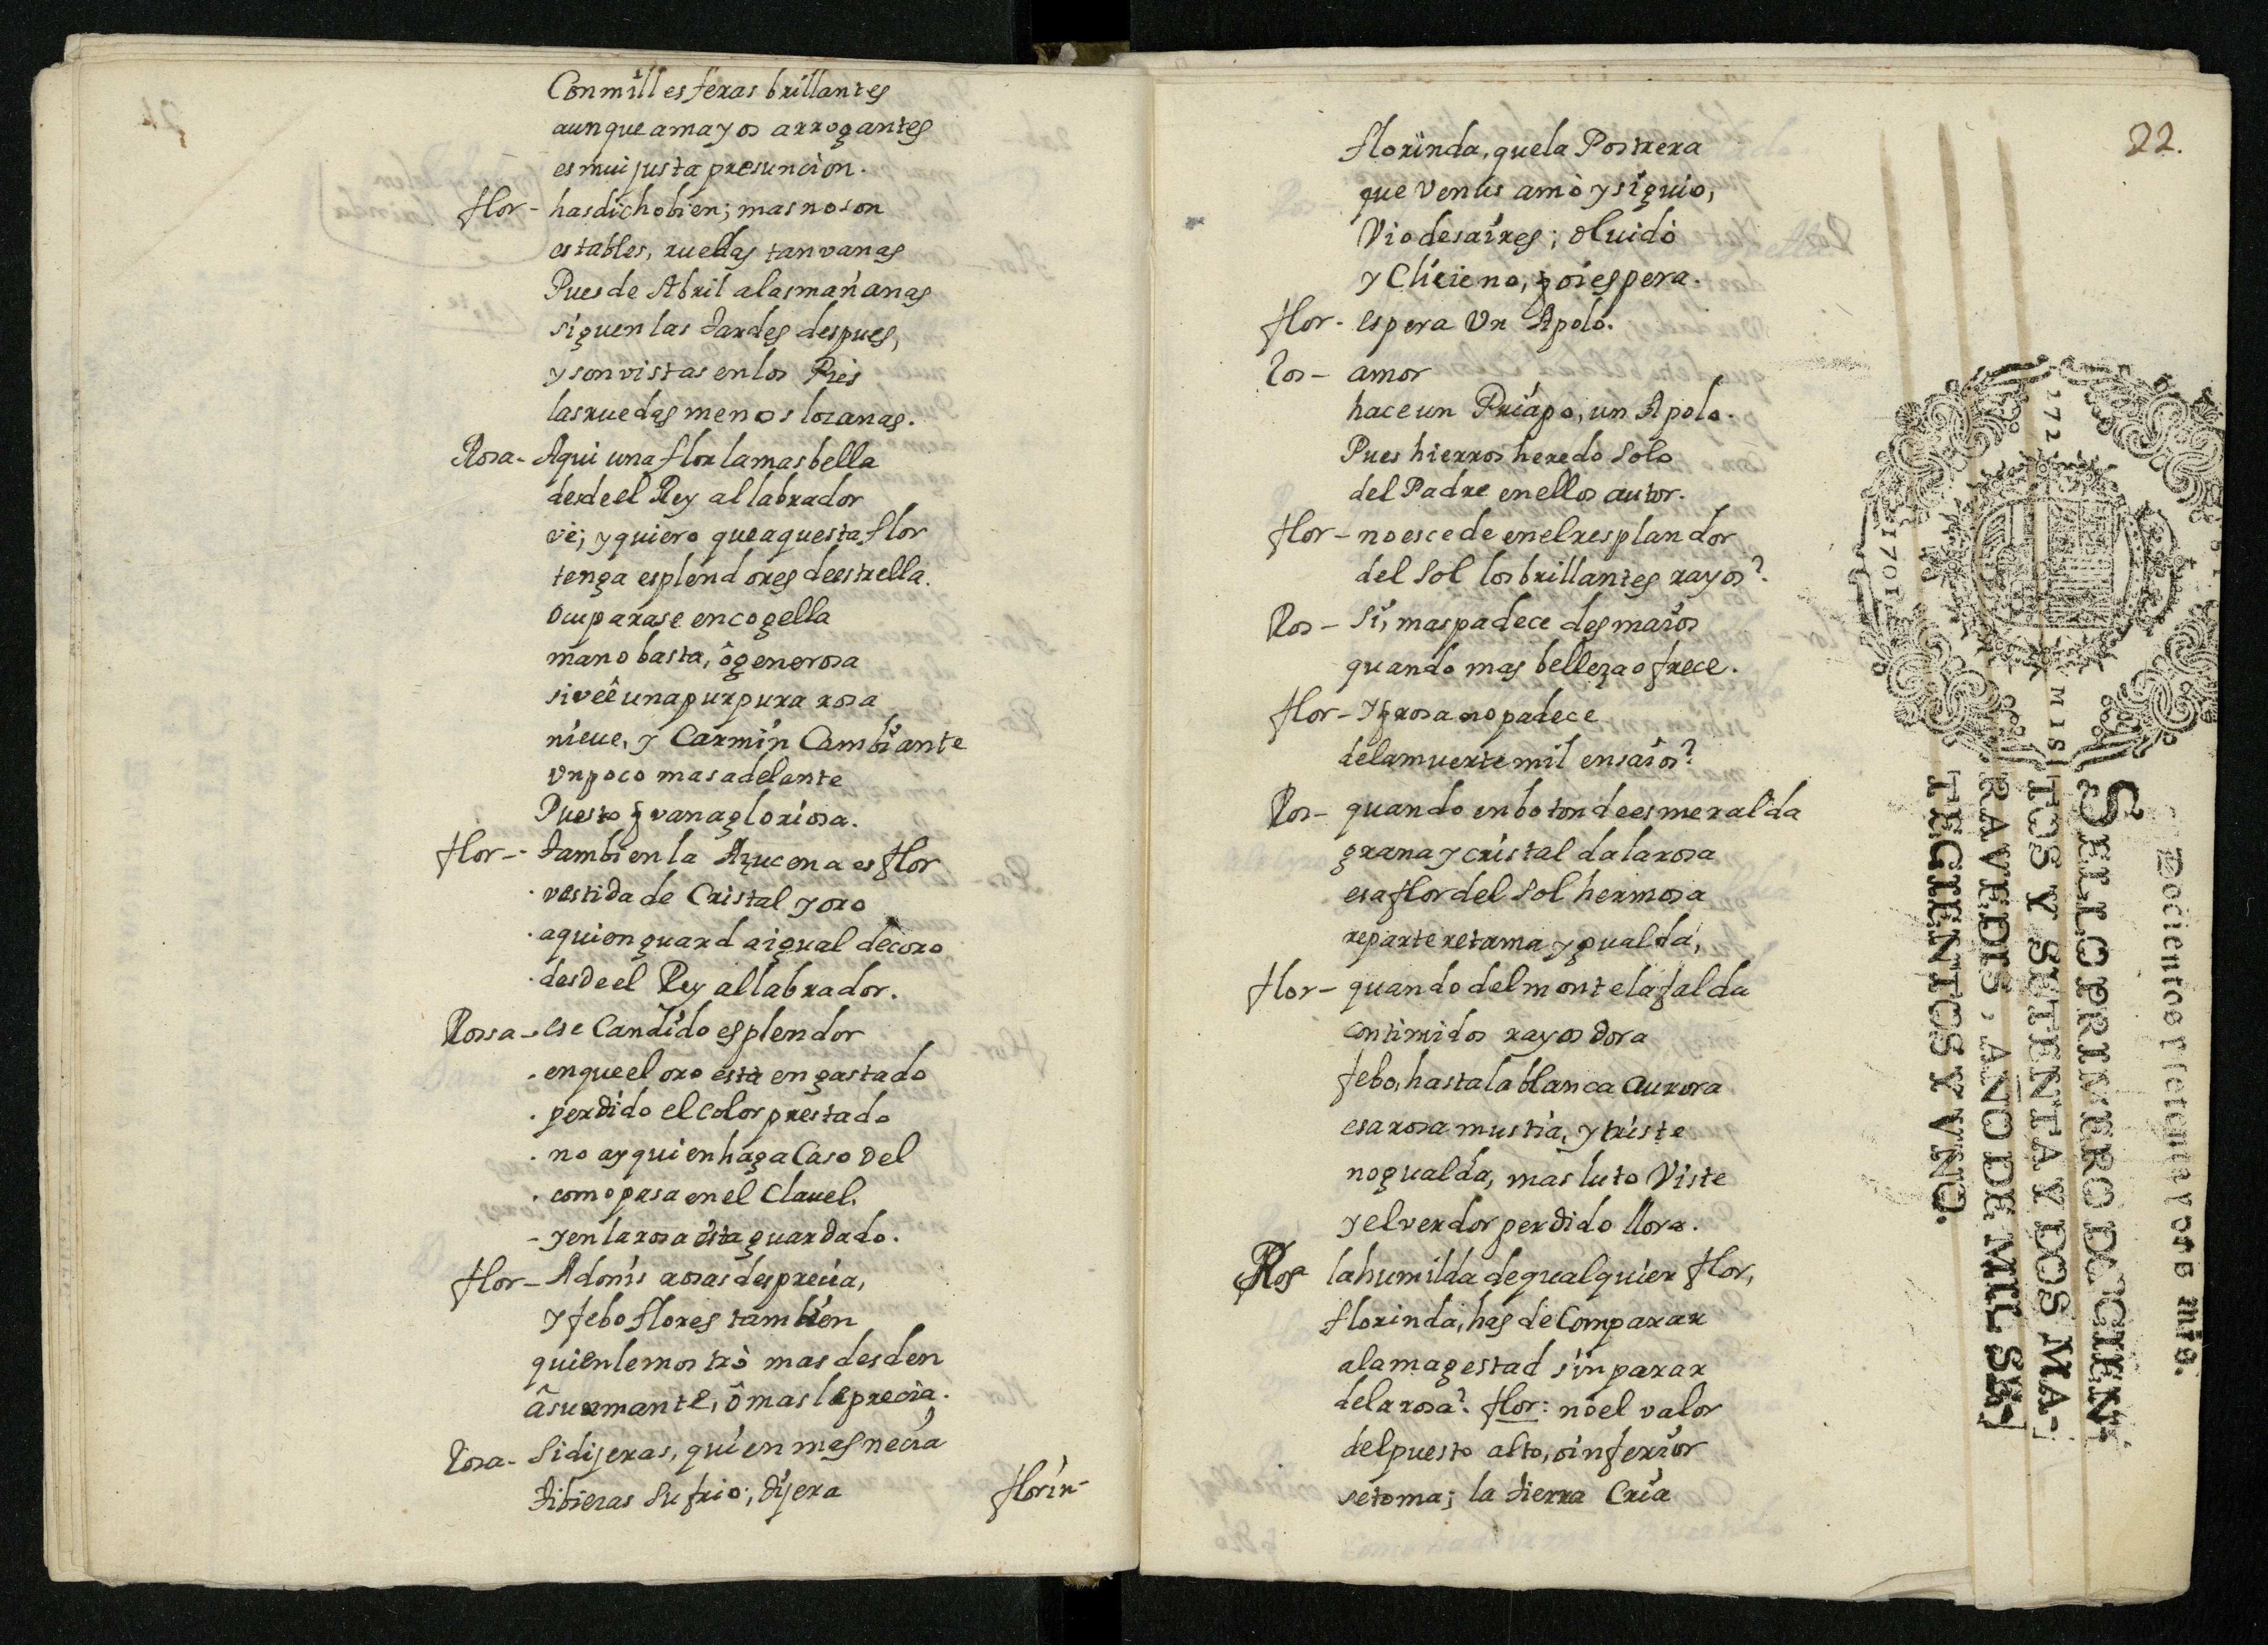 Con mill esferas brillantes
aunque a mayos arrogantes
es mui justa presuncion.
flor - has dicho bien; mas no son
estables, ruedas tan vanas
Pues de Abril a las mañanas
siguen las tardes despues,
y son vistas en los Pies
las ruedas menos lozanas.
Rosa - Aqui una flor la mas bella
desde el Rey al labrador
vè; y quiero que aquesta flor
tenga esplendores de estrella.
Ocuparase en cogella
mano basta, ô generosa
si veê una purpura rosa
nieue, y Carmin Cambiante
Un poco mas adelante
Puesto q vanagloriosa.
flor - tambien la Azucena es flor
vestida de Cristal y oro
a quien guarda igual decoro
desde el Rey al labrador.
Rossa - ese Candido esplendor
en que el oro està engastado
perdido el color prestado
no ay quien haga Caso del
como pasa en el Clauel.
y en la rosa esta guardado.
flor - Adonis rosas desprecia,
y febo flores tambien
quien le mostrò mas desden
â su amante, ô mas le precia.
Rosa - Si dijeras, quien mas necia
tibiezas Sufrio; dijera
florin-
22.
florinda, que la Postrera
que Venus amò y siguio,
Vio desaires; olvidò
y Clicie no, q oi espera.
flor - espera Un Apolo.
Ros - amor
hace un Priapo, un Apolo.
Pues hierros heredò Solo
del Padre en ellos autor.
flor - no escede en el resplandor
del Sol los brillantes rayos?
Ros - Si, mas padece desmaios
quando mas belleza ofrece.
flor - Y q rosa no padece
de la muerte mil ensaios?
Ros - quando en boton de esmeralda
grana y cristal da la rosa
esa flor del Sol hermosa
reparte retama y gualda,
flor - quando del monte la falda
con timidos rayos dora
febo, hasta la blanca Aurora
esa rosa mustia, y triste
no gualda, mas luto Viste
y el verdor perdido llora.
Rosa la humilda de qualquier flor,
florinda, has de Comparar
a la magestad sin parar
de la rosa? flor: no el valor
del puesto alto, o inferior
se toma; la tierra Cria
1701
Docientos setenta y dos mrs.
SELLO PRIMERO DOCIEN-
TOS Y SETENTA Y DOS MA-
RAVEDIS, AÑO DE MIL SE-
TECIENTOS Y VNO.